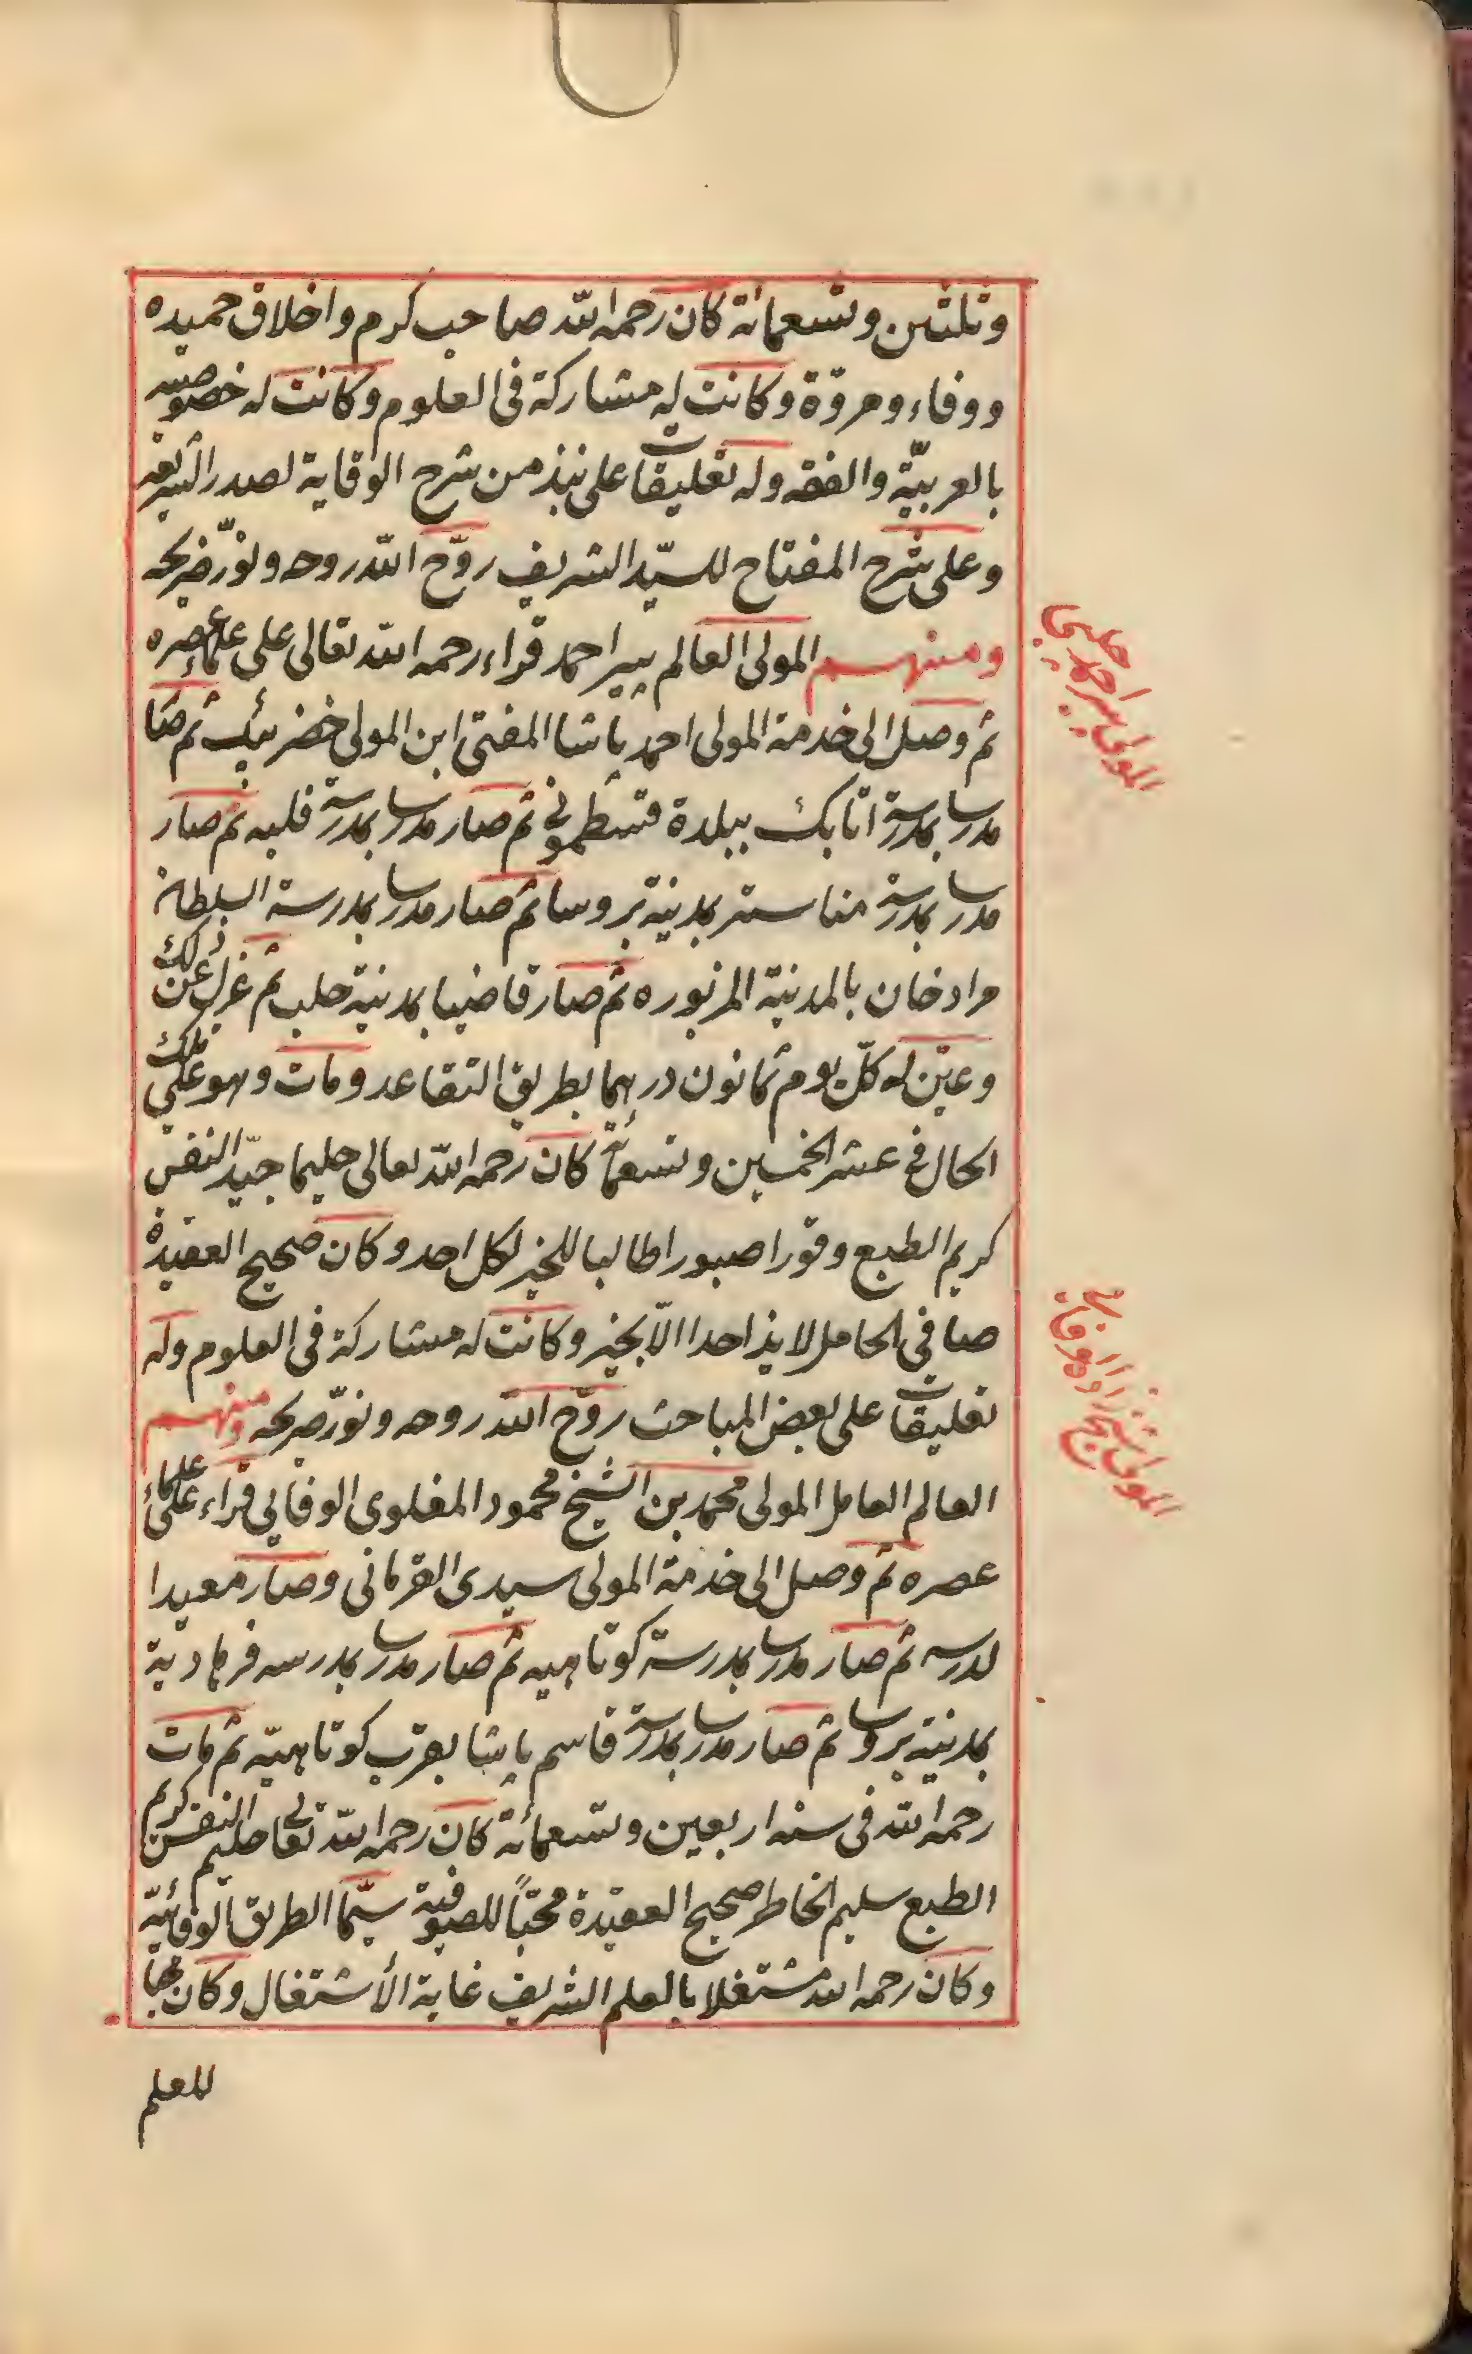 وثلثين وتسعمائة كان رحمه الله صاحب كرم واخلاق حميده
ووفاء ومروّة وكانت له مشاركة فى العلوم وكانت له خصوصيته
بالعربيّة والفقه وله تعليقات على نبذ من شرح الوقاية لصدر الشريعه
وعلى شرح المفتاح للسيّد الشريف روّح الله روحه ونوّر ضريحه
ومنهم المولى العالم پير احمد قراء رحمه الله تعالى على علماء عصره
ثم وصل الى خدمة المولى احمد پاشا المفتى ابن المولى خضر بئك ثم صار
مدرسا بمدرسة اتابك ببلدة قسطمونى ثم صار مدرسا بمدرسة قلبه ثم صار
مدرسا بمدرسة مناستر بمدينة بروسا ثم صار مدرسا بمدرسة السلطان
مراد خان بالمدينة المزبوره ثم صار قاضيا بمدينة حلب ثم عزل عن ذلك
وعيّن له كلّ يوم ثمانون درهما بطريق التقاعد ومات وهو على تلك
الحال فى عشر الخمسين وتسعمائة كان رحمه الله تعالى حليما جيّد النفس
كريم الطبع وقورا صبورا طالبا للخير لكل احد وكان صحيح العقيدة
صافى الخاطر لا يذكر احدا الّا بخير وكانت له مشاركة فى العلوم وله
تعليقات على بعض المباحث روّح الله روحه ونوّر ضريحه ومنهم
العالم العامل المولى محمد بن الشيخ محمود المغلوى الوفائي قراء على علماء
عصره ثم وصل الى خدمة المولى سيدى القرمانى وصار معيدا
لدرسه ثم صار مدرسا بمدرسة كوتاهيه ثم صار مدرسا بمدرسه فرهادية
بمدينة بروسا ثم صار مدرسا بمدرسة قاسم پاشا بقرب كوتاهيّه ثم مات
رحمه الله فى سنه اربعين وتسعمائة كان رحمه الله تعالى حليم النفس كريم
الطبع سليم الخاطر صحيح العقيدة محبّاً للصوفية سيّما الطريق الوفائيّه
وكان رحمه الله مشتغلا بالعلم الشريف غاية الأشتغال وكان محبا
للعلم
المولى پير احمد چلبى
المولى شيخ زاده الوفائى